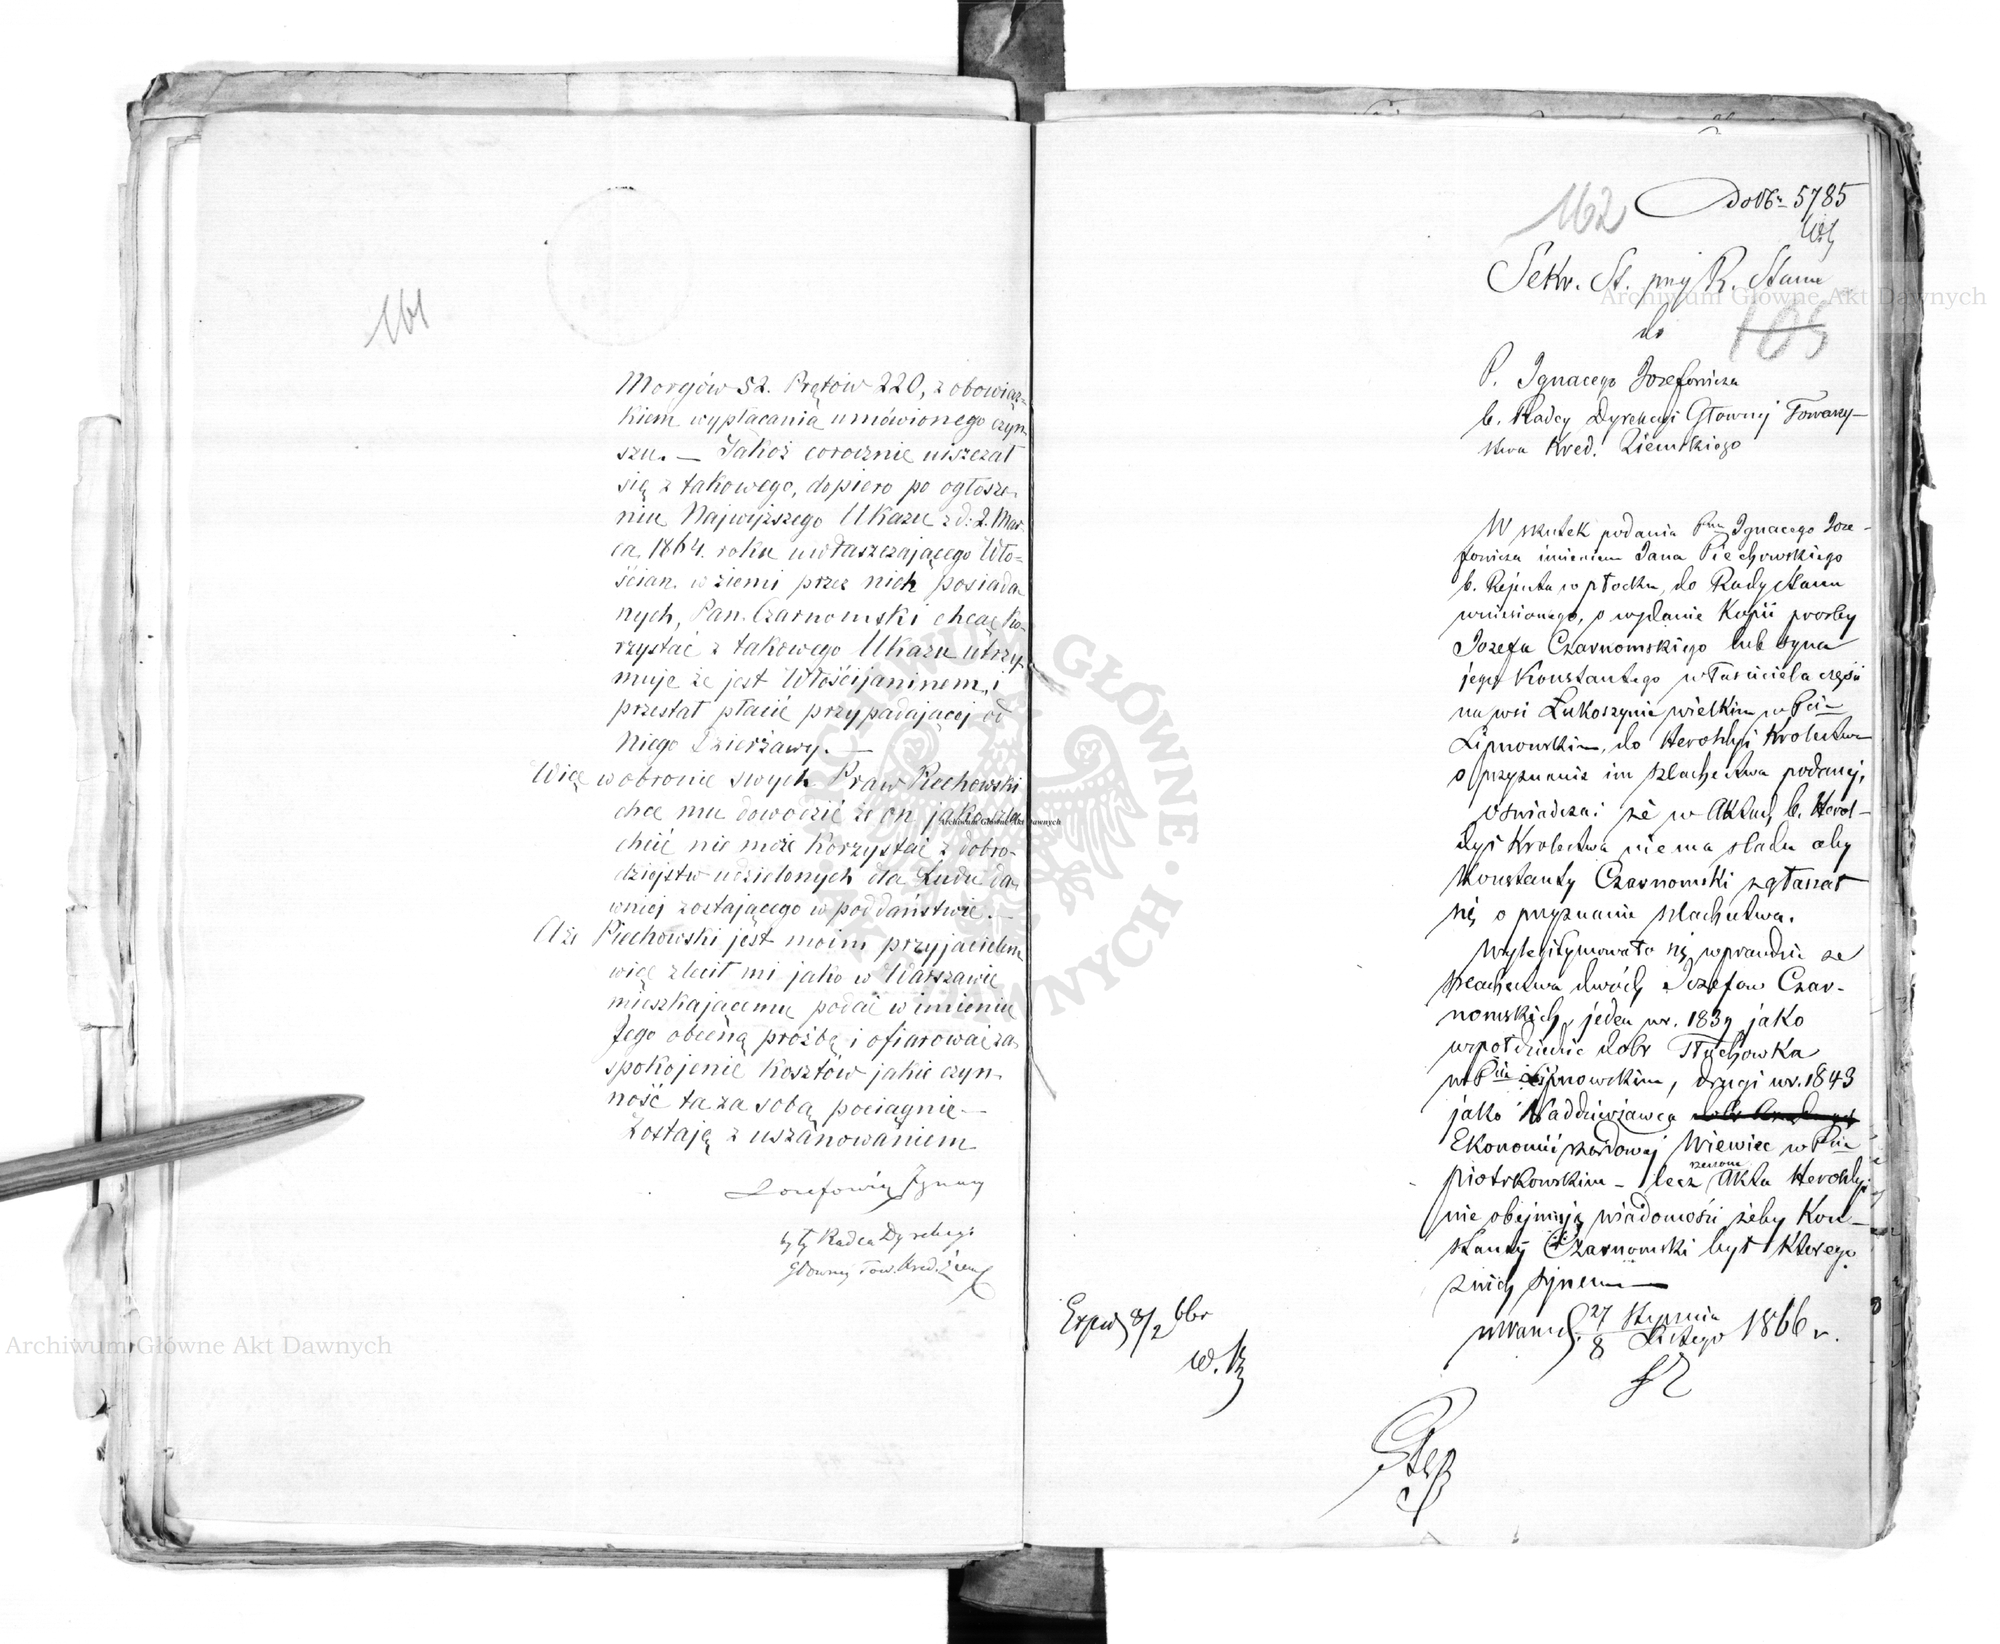 161
Morgów 52. Prętów 220, z obowiąz-
kiem wypłacania umówionego czyn-
szu. — Jakoż corocznie uiszczał
się z takowego, dopiero po ogłosze-
niu Najwyższego Ukazu z d: 2. Mar-
ca 1864. roku uwłaszczającego Wło-
ścian w ziemi przez nich posiada-
nych, Pan Czarnomski chcąc ko-
rzystać z takowego Ukazu utrzy-
muje że jest Włościjaninem, i
przestał płacić przypadającej od
Niego Dzierżawy. —
Więc w obronie swych Praw Piechowski
chce mu dowodzić że on jako szla-
chcic nie może korzystać z dobro-
dziejstw udzielonych dla Ludu da-
wniej zostającego w poddaństwie. —
A że Piechowski jest moim przyjacielem
więc zlecił mi jako w Warszawie
mieszkającemu podać w imieniu
Jego obecną prośbę i ofiarować za-
spokojenie kosztów jakie czyn-
ność ta za sobą pociągnie —
Zostaję z uszanowaniem
Józefowicz Ignacy
były Radca Dyrekcyi
Głównej Tow. Kred. Ziem
162
do № 5785
Sekr. St. przy R. Stanu
do
105
P. Ignacego Jozefowicza
b. Radcy Dyrekcyi Głownej Towarzy-
stwa Kred. Ziemskiego
W skutek podania Pna Ignacego Joze-
fowicza imieniem Jana Piechowskiego
b. Rejenta w Płocku, do Rady Stanu
wniesionego, o wydanie Kopii prosby
Jozefa Czarnomskiego lub syna
jego Konstantego własciciela częsci
na wsi Łukoszynie wielkim w Pcie
Lipnowskim, do Heroldyi Krolestwa
o przyznanie im szlachectwa podanej,
oswiadcza: że w Aktach b. Herol-
dyi Krolestwa niema sladu aby
Konstanty Czarnomski zgłaszał
się o przyznanie szlachectwa.
Wylegitymowało się wprawdzie ze
szlachectwa dwóch Jozefow Czar-
nomskich, jeden w r. 1839 jako
wspołdziedzic dobr Stuchowka
w Pcie Lipnowskim, drugi w r. 1843
jako Naddzierżawca
Ekonomii rządowej Wiewiec w Pcie
Piotrkowskim – lecz rzeczone Akta Heroldyi
nie obejmują wiadomości żeby Kon-
stanty Czarnomski był którego
z nich synem —
w Warsz. d. 27 Stycznia
8 Lutego 1866 r.
Exped 8/2 66r
W. K
Archiwum Główne Akt Dawnych
Archiwum Główne Akt Dawnych
Archiwum Główne Akt Dawnych
ARCHIWUM GŁÓWNE AKT DAWNYCH